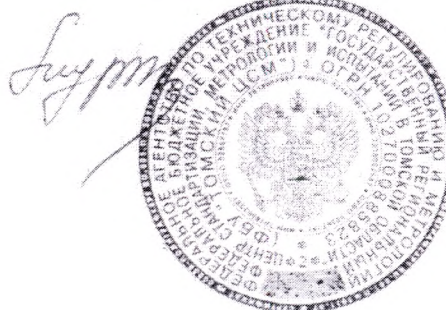 ФЕДЕРАЛЬНОЕ АГЕНТСТВО ПО ТЕХНИЧЕСКОМУ РЕГУЛИРОВАНИЮ И МЕТРОЛОГИИ
ФЕДЕРАЛЬНОЕ БЮДЖЕТНОЕ УЧРЕЖДЕНИЕ "ГОСУДАРСТВЕННЫЙ РЕГИОНАЛЬНЫЙ
ЦЕНТР СТАНДАРТИЗАЦИИ, МЕТРОЛОГИИ И ИСПЫТАНИЙ В ТОМСКОЙ ОБЛАСТИ"
(ФБУ "ТОМСКИЙ ЦСМ") ОГРН 1027000885823